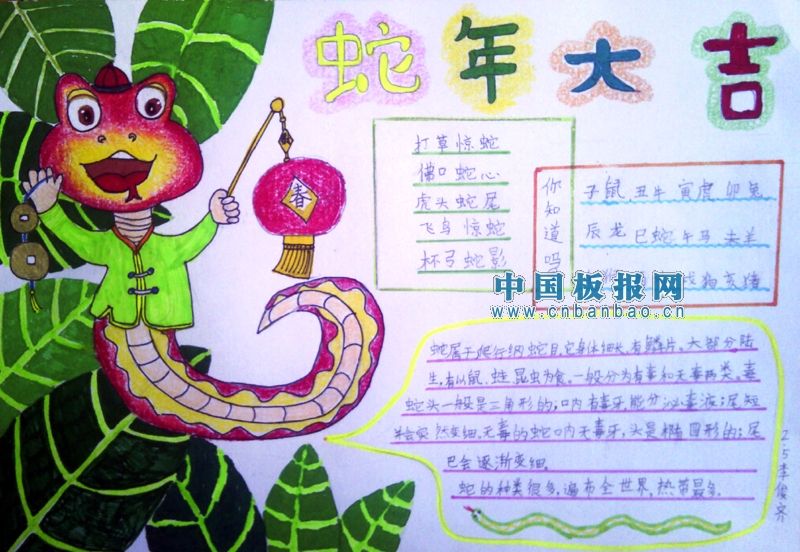 蛇年大吉
打草惊蛇
佛口蛇心
虎头蛇尾
飞鸟惊蛇
杯弓蛇影
你知道吗
子鼠 丑牛 寅虎 卯兔
辰龙 巳蛇 午马 未羊
戌狗 亥猪
中国板报网
www.cnbanbao.cn
春
蛇属于爬行纲蛇目,它身体细长,有鳞片。大部分陆
生,有以鼠、蛙、昆虫为食。一般分为有毒和无毒两类。毒
蛇头一般是三角形的;口内有毒牙,能分泌毒液;尾短
然变细。无毒的蛇口内无毒牙,头是椭圆形的;尾
巴会逐渐变细。
蛇的种类很多,遍布全世界,热带最多。
25李俊齐